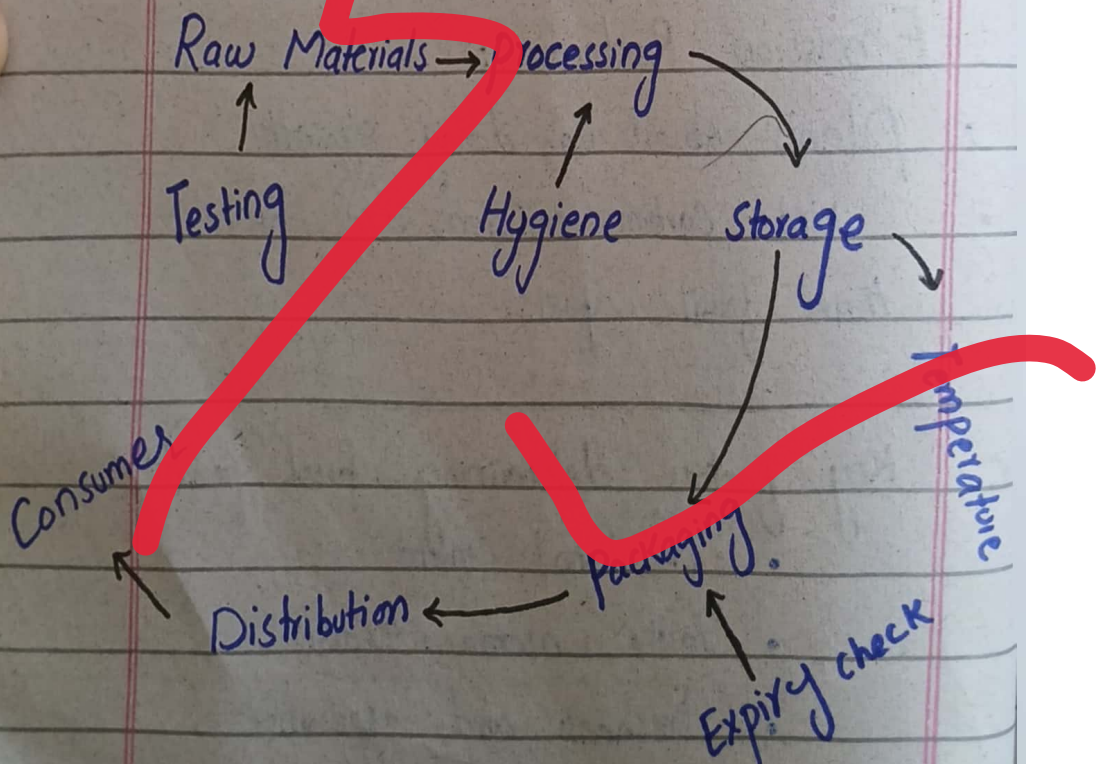 Raw Materials → Processing
Testing
Hygiene
Storage
Temperature
Consumer
Packaging.
Distribution
Expiry check